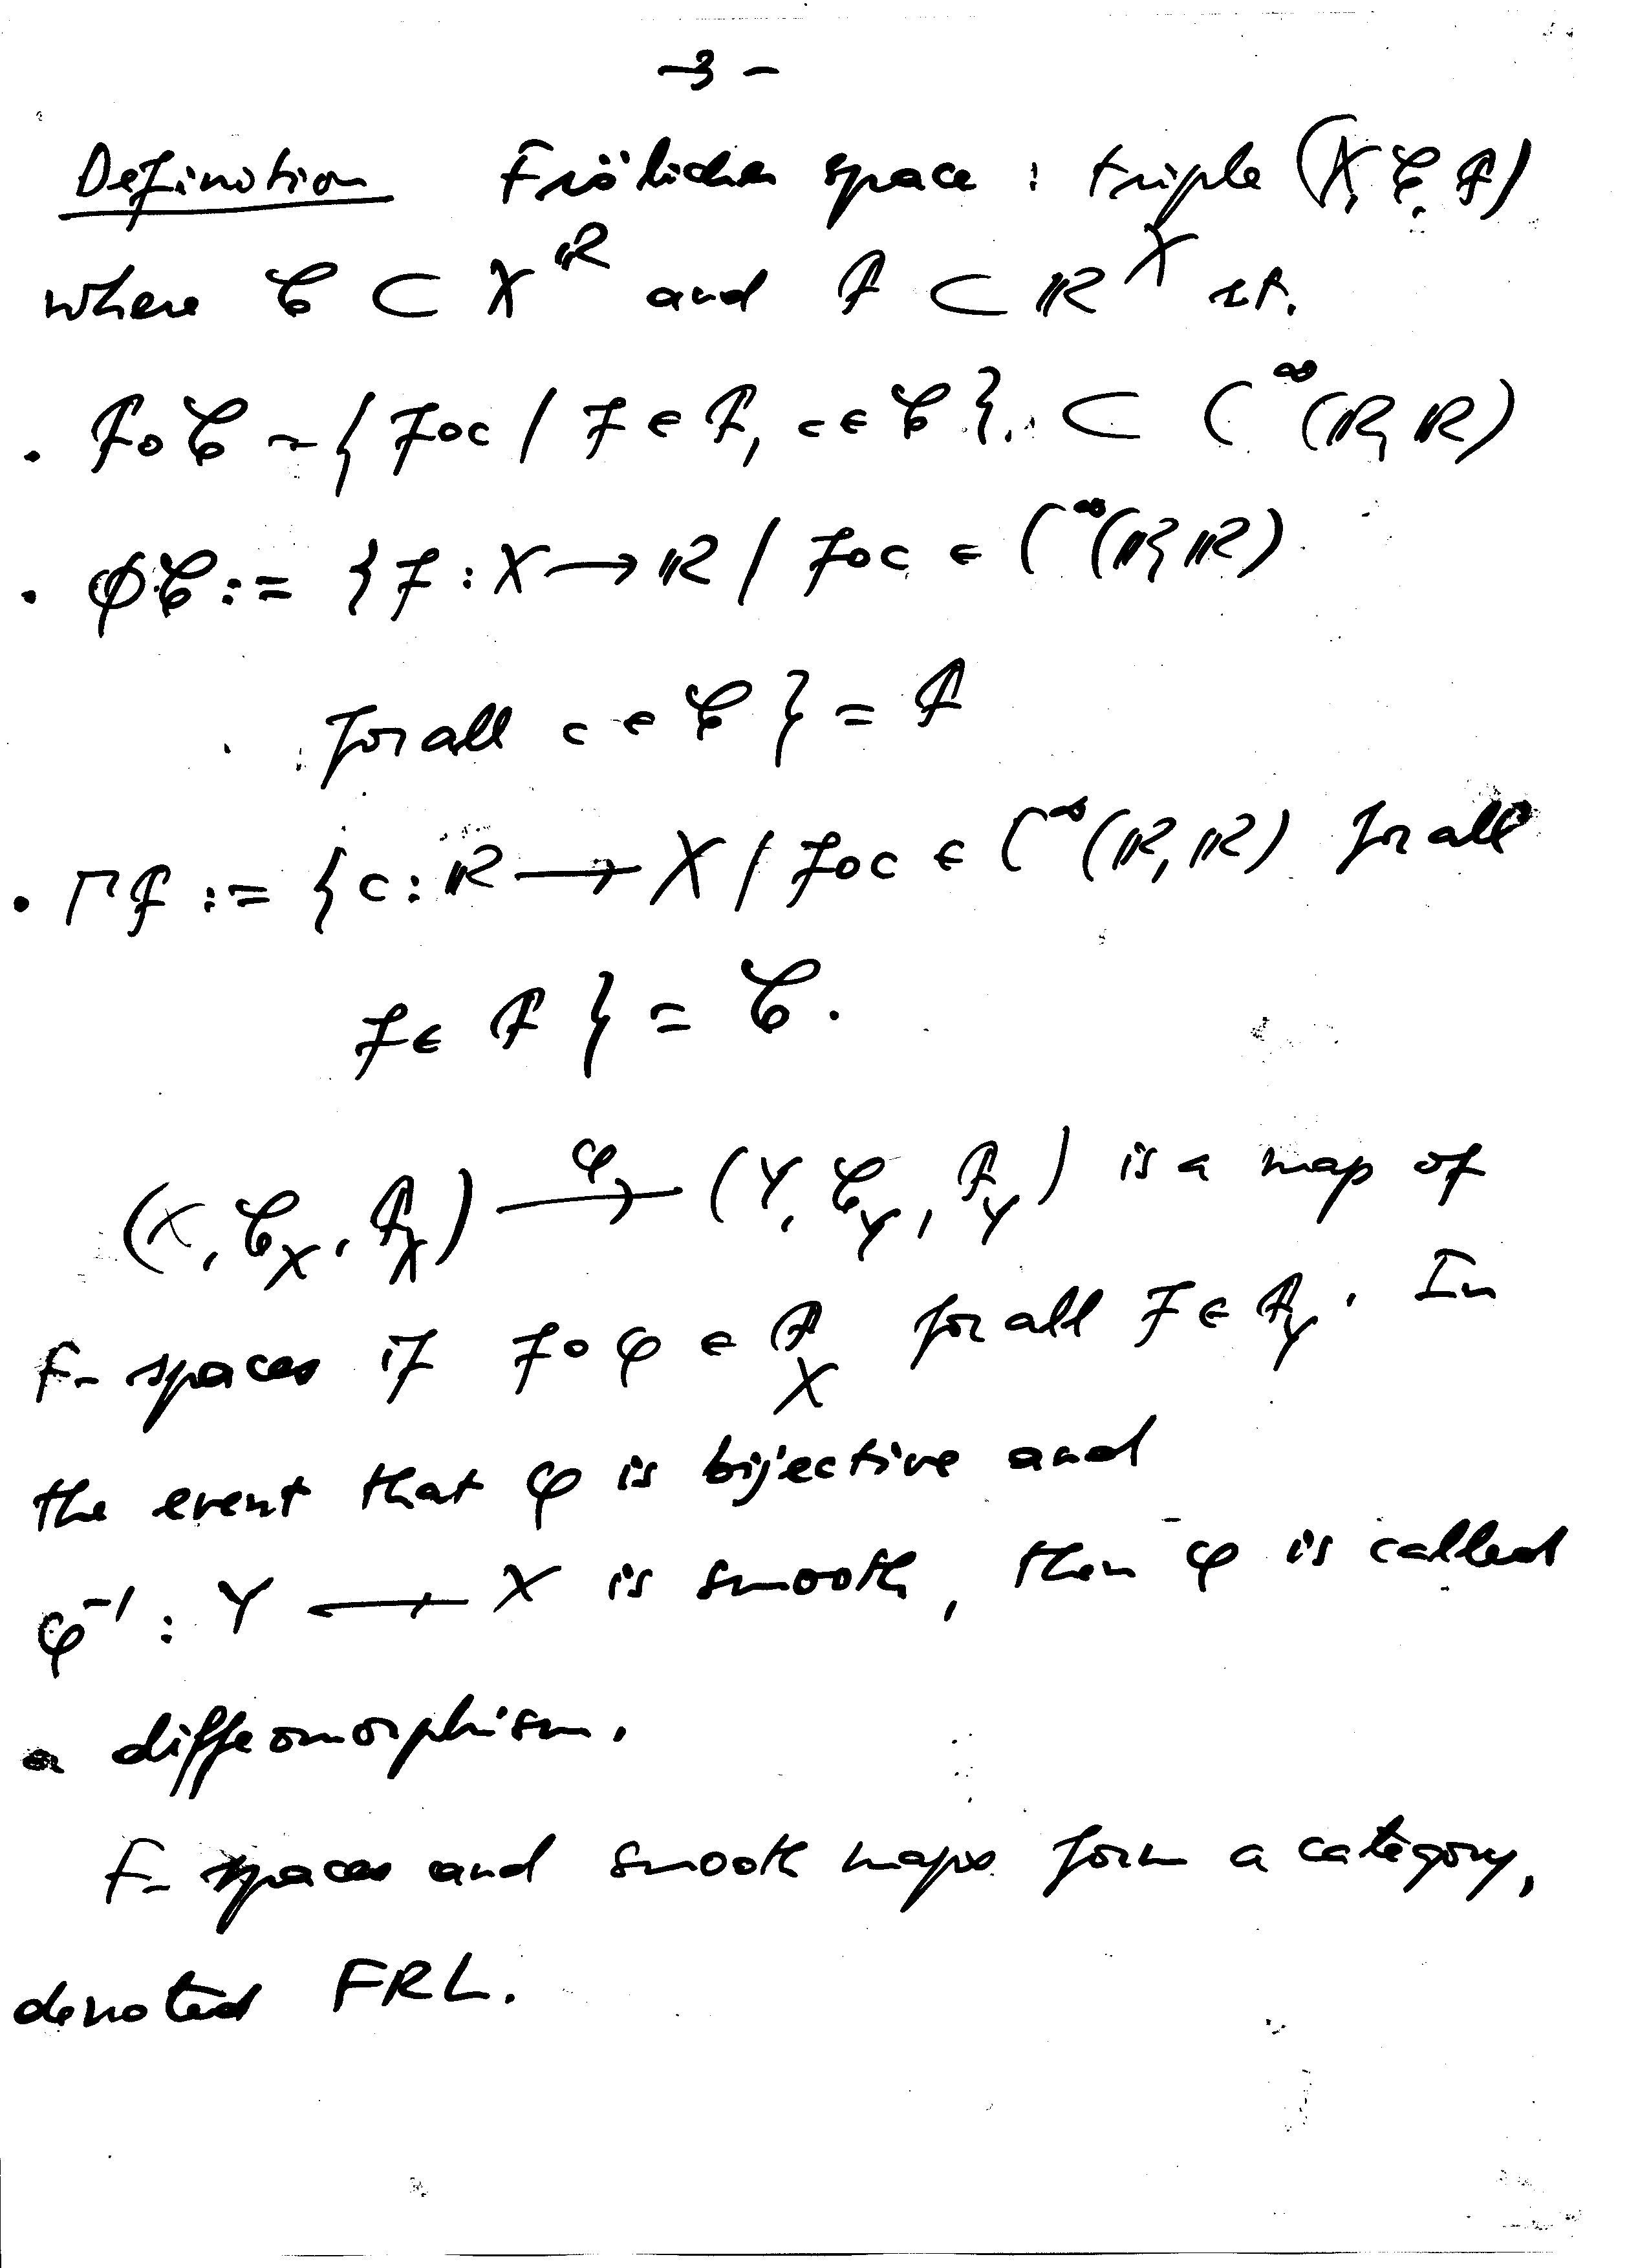 -3-
Definition Frölicher space : triple (X, 𝒞, ℱ)
where 𝒞 ⊂ X^ℝ and ℱ ⊂ ℝ^X st.
· ℱ∘𝒞 = { f∘c / f ∈ ℱ, c ∈ 𝒞 } ⊂ C^∞(ℝ, ℝ)
· Φ𝒞 := { f : X → ℝ / f∘c ∈ C^∞(ℝ, ℝ)
for all c ∈ 𝒞 } = ℱ
· Γℱ := { c : ℝ → X / f∘c ∈ C^∞(ℝ, ℝ) for all
f ∈ ℱ } = 𝒞.
(X, 𝒞_X, ℱ_X) →^φ (Y, 𝒞_Y, ℱ_Y) is a map of
F-spaces if f∘φ ∈ ℱ_X for all f ∈ ℱ_Y. In
the event that φ is bijective and
φ^-1 : Y → X is smooth, then φ is called
a diffeomorphism.
F-spaces and smooth maps form a category,
denoted FRL.